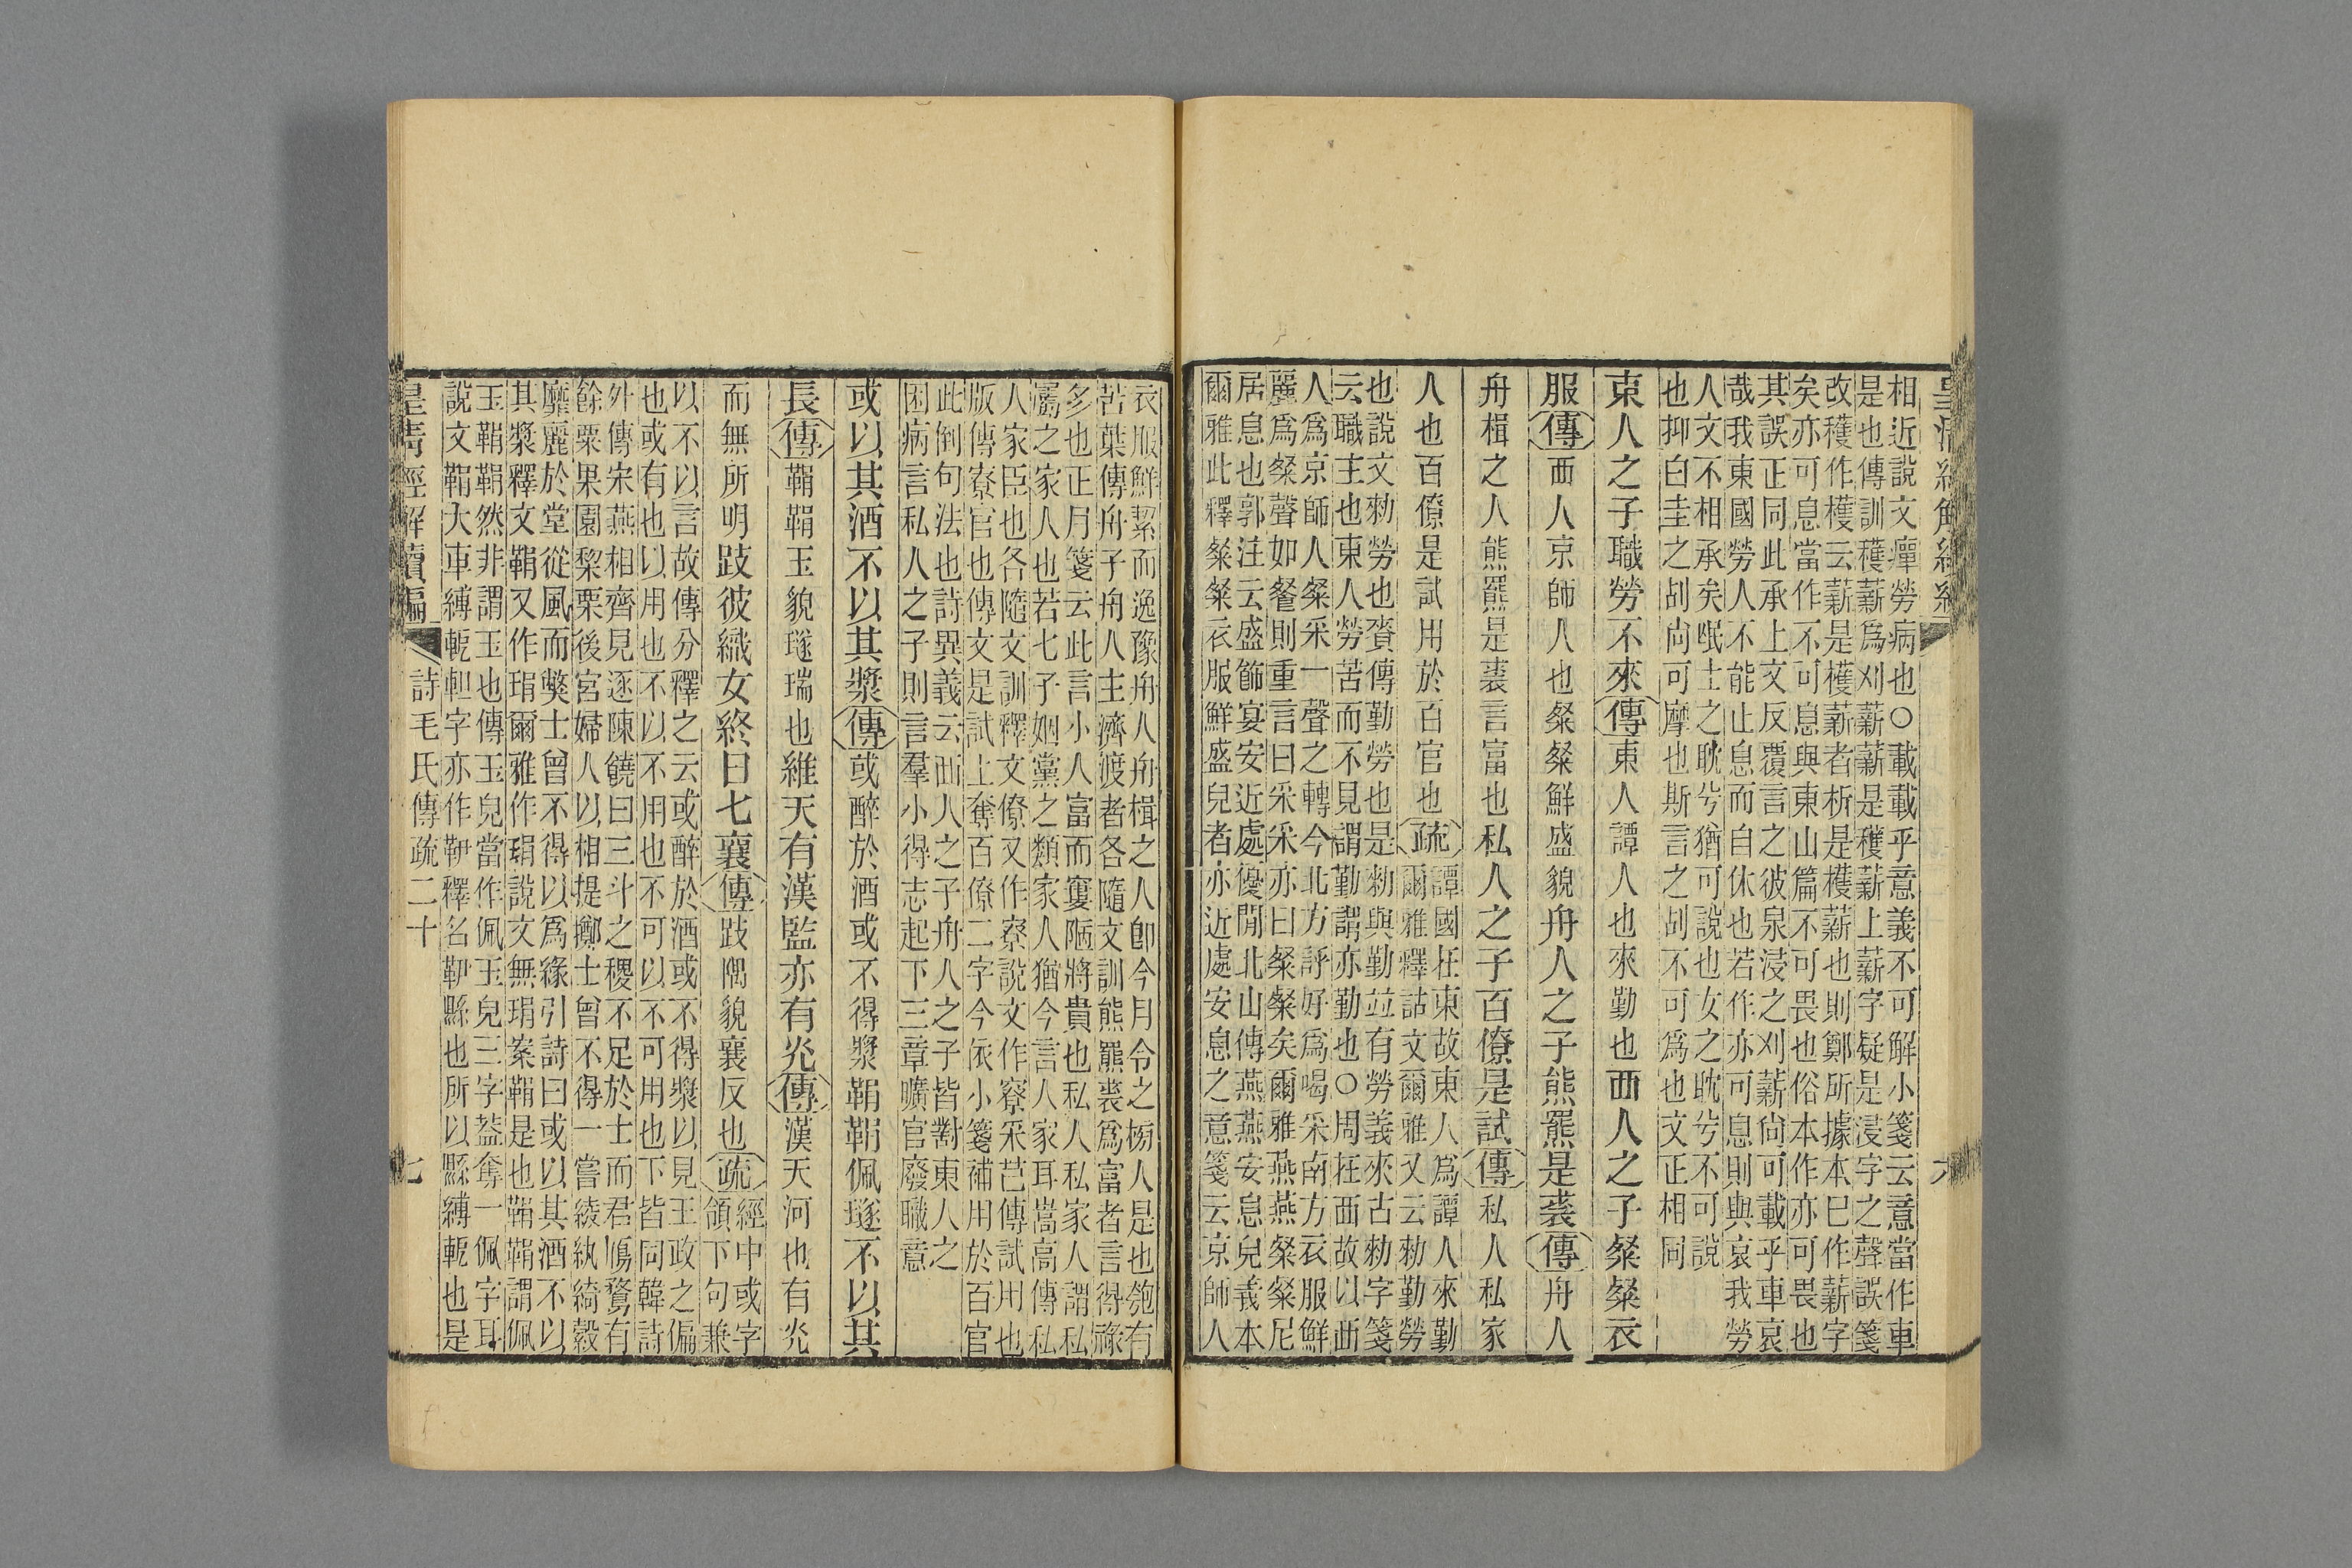 相近說文癉勞病也○載載乎意義不可解小箋云意當作車
是也傳訓穫薪爲刈薪薪是穫薪上薪字疑是浸字之聲誤箋
改穫作檴云薪是檴薪者析是檴薪也則鄭所據本巳作薪字
矣亦可息當作不可息與東山篇不可畏也俗本作亦可畏也
其誤正同此承上文反覆言之彼泉浸之刈薪尙可載乎車哀
哉我東國勞人不能止息而自休也若作亦可息則與哀我勞
人文不相承矣氓士之耽兮猶可說也女之耽兮不可說
也抑白圭之刮尙可摩也斯言之刮不可爲也文正相同
東人之子職勞不來傳東人譚人也來勤也西人之子粲粲衣
服傳西人京師人也粲粲鮮盛貌舟人之子熊羆是裘傳舟人
舟楫之人熊羆是裘言富也私人之子百僚是試傳私人私家
人也百僚是試用於百官也疏
譚國在東故東人爲譚人來勤
爾雅釋詁文爾雅又云勑勤勞
也說文勑勞也賚傳勤勞也是勑與勤竝有勞義來古勑字箋
云職主也東人勞苦而不見謂勤謂亦勤也○周在西故以西
人爲京師人粲采一聲之轉今北方評好爲喝采南方衣服鮮
麗爲粲聲如餐則重言曰采采亦曰粲粲矣爾雅燕燕粲粲尼
居息也郭注云盛飾宴安近處優閒北山傳燕燕安息皃義本
爾雅此釋粲粲衣服鮮盛皃者亦近處安息之意箋云京師人
衣服鮮絜而逸豫舟人舟楫之人卽今月令之榜人是也匏有
苦葉傳舟子舟人主濟渡者各隨文訓熊羆裘爲富者言得祿
多也正月箋云此言小人富而窶陋將貴也私人私家人謂私
屬之家人也若七子姻黨之類家人猶今言人家耳嵩高傳私
人家臣也各隨文訓釋文僚又作寮說文作寮采芑傳試用也
版傳寮官也傳文是試上奪百僚二字今依小箋補用於百官
此倒句法也詩異義云西人之子舟人之子皆對東人之
困病言私人之子則言羣小得志起下三章曠官廢職意
或以其酒不以其漿傳或醉於酒或不得漿鞙鞙佩璲不以其
長傳鞙鞙玉貌璲瑞也維天有漢監亦有光傳漢天河也有光
而無所明跂彼織女終日七襄傳跂隅貌襄反也疏
經中或字
領下句兼
以不以言故傳分釋之云或醉於酒或不得漿以見王政之偏
也或有也以用也不以不用也不可以不可用也下皆同韓詩
外傳宋燕相齊見逐陳饒曰三斗之稷不足於士而君鴈鶩有
餘粟果園棃栗後宮婦人以相提擲士曾不得一嘗綾紈綺縠
靡麗於堂從風而獘士曾不得以爲緣引詩曰或以其酒不以
其漿釋文鞙又作琄爾雅作琄說文無琄案鞙是也鞙鞙謂佩
玉鞙鞙然非謂玉也傳玉皃當作佩玉皃三字葢奪一佩字耳
說文鞙大車縛軶䩠字亦作䩗釋名䩗縣也所以縣縛軶也是
皇清經解續編
詩毛氏傳疏二十
七